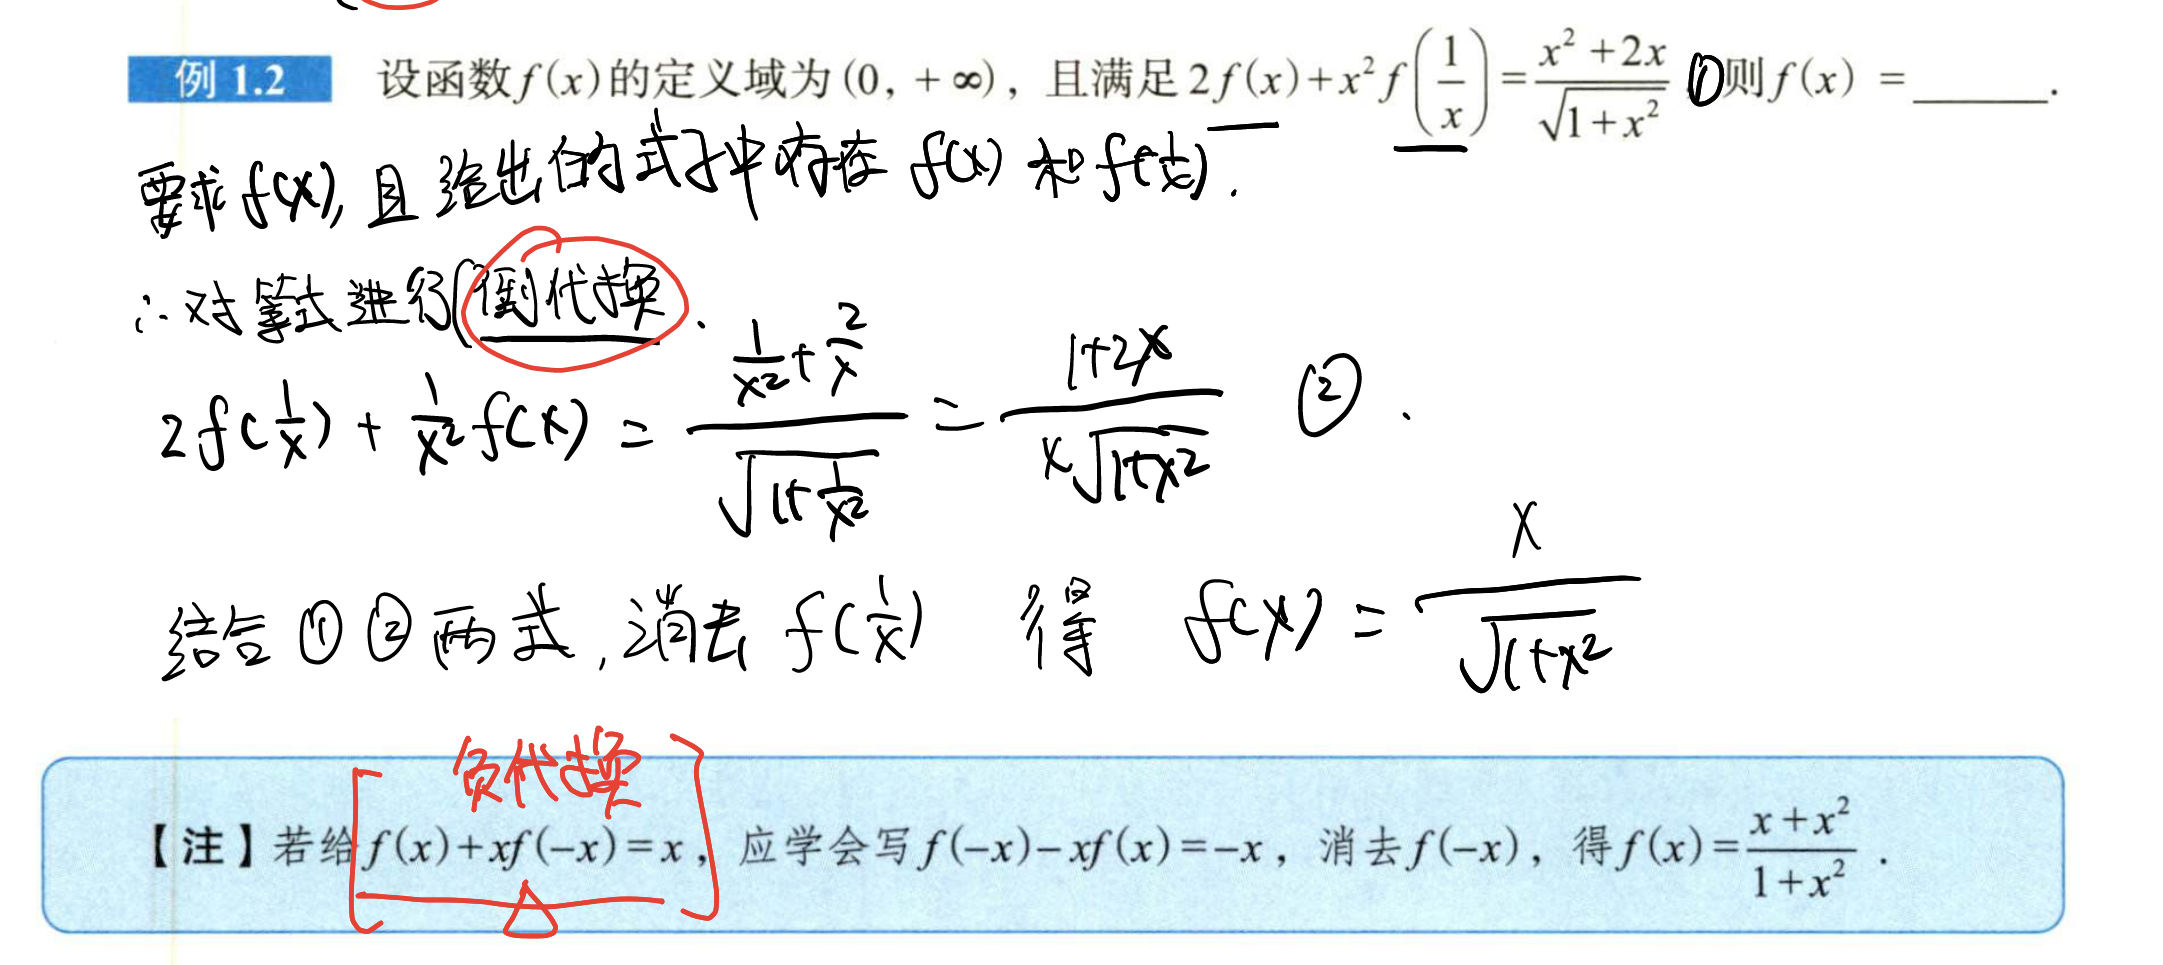 例 1.2 设函数f(x)的定义域为(0, +∞), 且满足2f(x)+x²f(1/x)=(x²+2x)/√(1+x²) ①则f(x) = ______.
要求f(x), 且给出的式子中存在 f(x) 和 f(1/x).
∴对等式进行(倒代换.
2f(1/x) + 1/x² f(x) = (1/x² + 2/x)/√(1+1/x²) = (1+2x)/(x√(1+x²)) ②.
结合①②两式, 消去 f(1/x) 得 f(x) = x/√(1+x²)
负代换
【注】若给f(x)+xf(-x)=x, 应学会写f(-x)-xf(x)=-x, 消去f(-x), 得f(x)=(x+x²)/(1+x²).